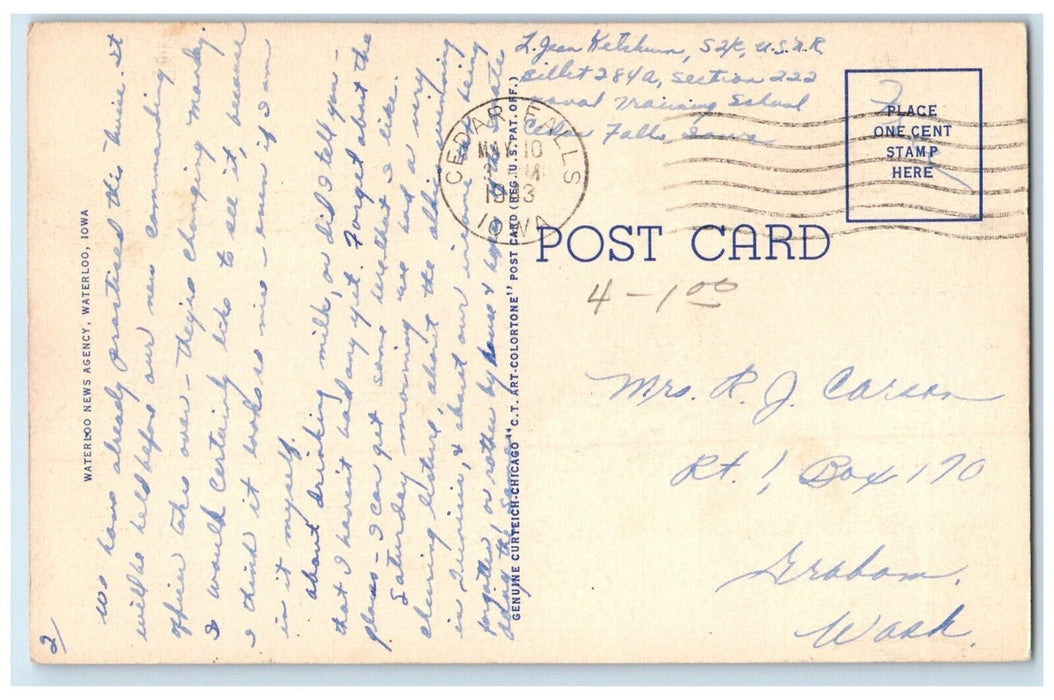 2/
we have already practised this twice. It
will be held before our new commanding
officer takes over - they're changing Monday.
I would certainly like to see it, because
I think it looks so nice - even if I am
in it myself.
About drinking milk, or did I tell you -
that I haven't had any yet. Forget about the
plans - I can get some whether I like.
Saturday morning we had a very
charming lecture, about the allies winning
in Tunisia, & about our income tax being
forgotten, or rather by house &
doing the same
WATERLOO NEWS AGENCY, WATERLOO, IOWA
GENUINE CURTEICH-CHICAGO "C.T. ART-COLORTONE" POST CARD (REG. U.S. PAT. OFF.)
L. Jean Ketchum, S2/c, U.S.N.R.
Billet 284A, Section 222
Naval Training School
Cedar Falls, Iowa
CEDAR FALLS
MAY 10
PM
1943
IOWA
PLACE
ONE CENT
STAMP
HERE
POST CARD
4 - 1.00
Mrs. R. J. Carson
Rt. 1, Box 170
Graham,
Wash.